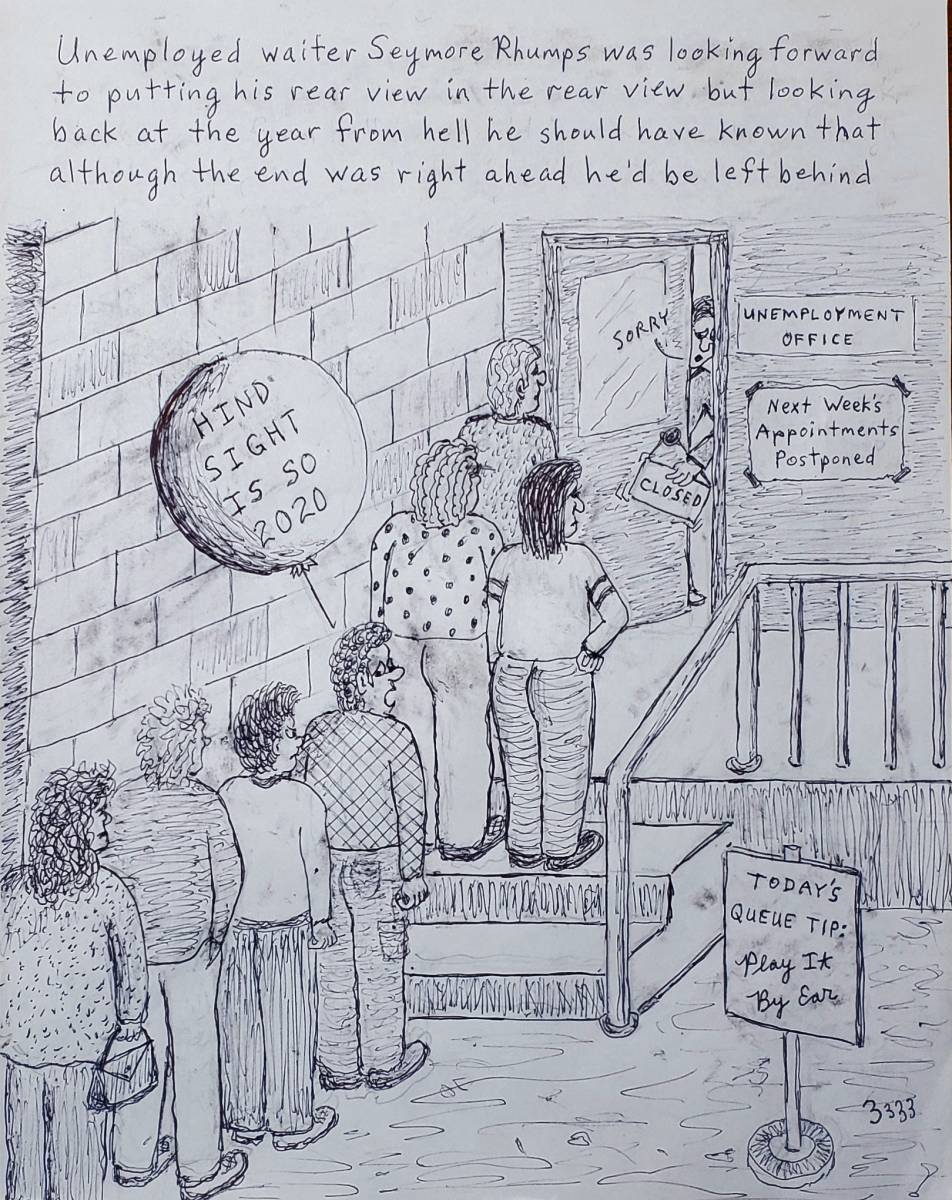 Unemployed waiter Seymore Rhumps was looking forward
to putting his rear view in the rear view but looking
back at the year from hell he should have known that
although the end was right ahead he'd be left behind
SORRY
UNEMPLOYMENT
OFFICE
HIND
SIGHT
IS SO
2020
Next Week's
Appointments
Postponed
CLOSED
TODAY'S
QUEUE TIP:
Play It
By Ear
3333